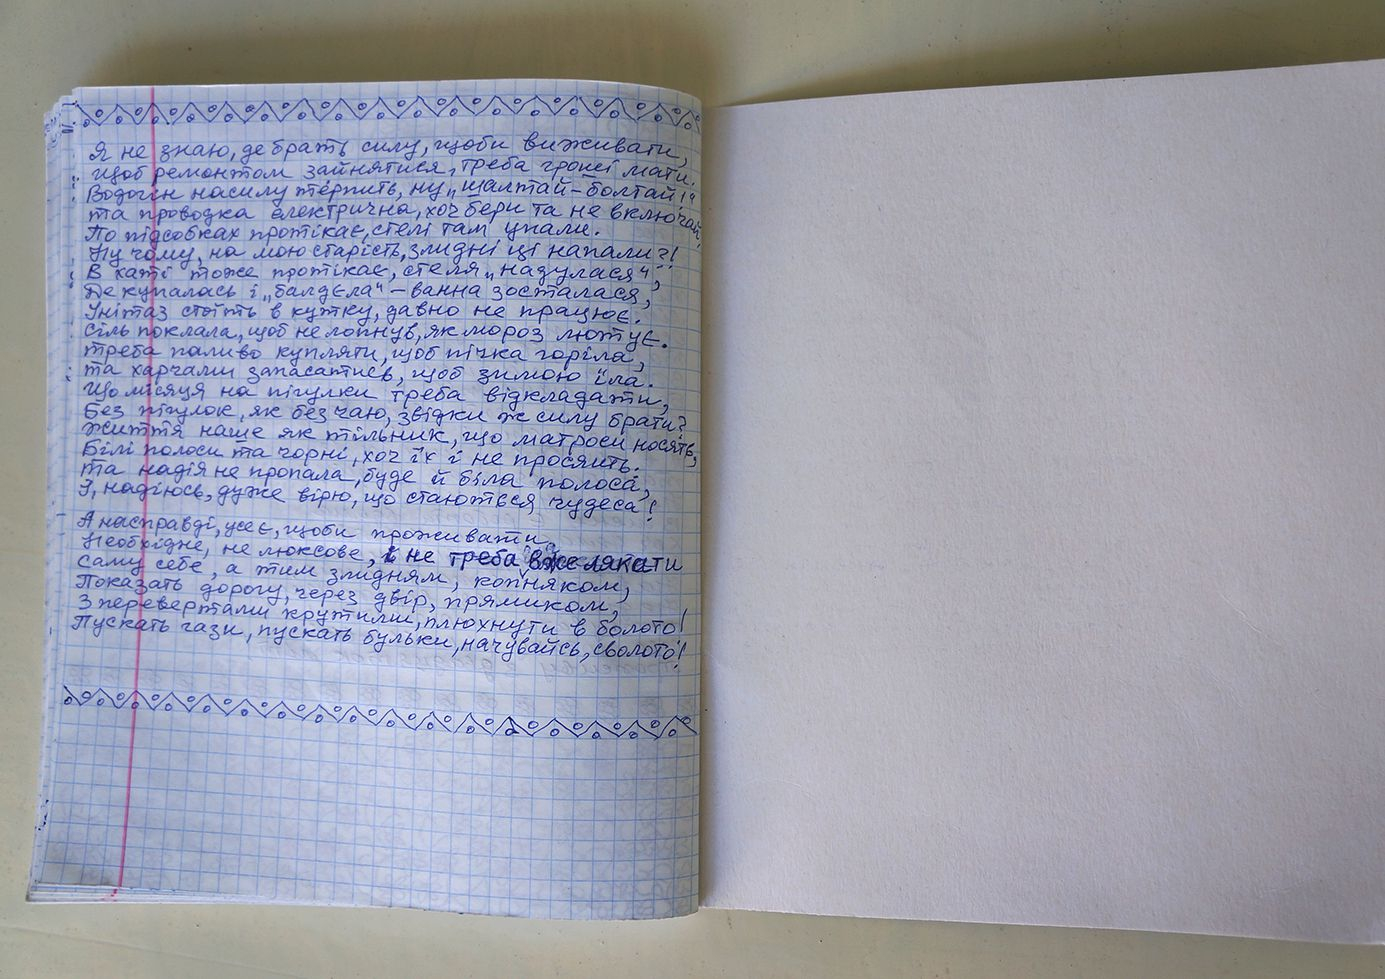 Я не знаю, де брать силу, щоби виживати,
Щоб ремонтом зайнятися, треба гроші мати.
Водогін насилу терпить, ну „шалтай-болтай!"
та проводка електрична, хоч бери та не включай,
По підсобках протікає, стелі там упали.
Ну чому, на мою старість, злидні ці напали?!
В хаті тоже протікає, стеля „надулася",
Де купалась і „балдєла" – ванна зосталася,
Унітаз стоїть в кутку, давно не працює.
Сіль поклала, щоб не лопнув, як мороз лютує.
треба паливо купляти, щоб пічка горіла,
та харчами запасатись, щоб зимою їла.
Що місяця на пігулки треба відкладати,
Без пігулок, як без чаю, звідки ж силу брати?
Життя наше як тільник, що матроси носять,
Білі полоси та чорні, хоч їх і не просять.
та надія не пропала, буде й біла полоса,
І, надіюсь, дуже вірю, що стаються чудеса!
А насправді, усе є, щоби проживати.
Необхідне, не люксове, і не треба вже лякати
Саму себе, а тим злидням, копняком,
Показать дорогу, через двір, прямиком,
З перевертами крутими, плюхнути в болото!
Пускать гази, пускать бульки, начувайсь, сволото!